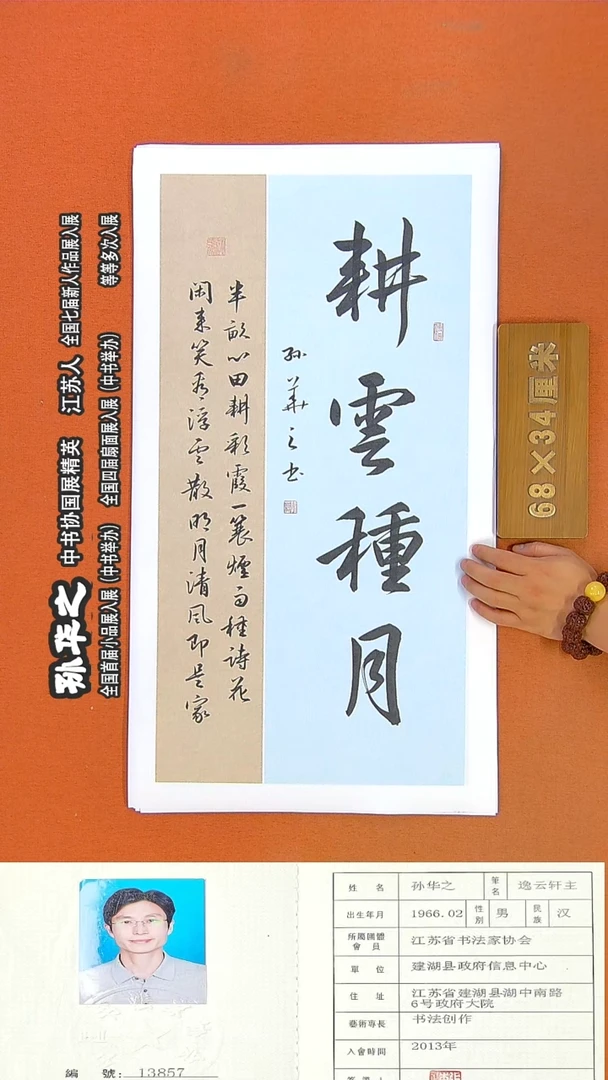 耕雲種月
孙華之书
半畝心田耕彩霞一蓑煙雨種詩花
闲来笑看浮雲散明月清風即是家
孙华之 中书协国展精英 江苏人 全国七届新人作品展入展
全国首届小品展入展（中书举办） 全国四届扇面展入展（中书举办） 等等多次入展
68×34厘米
姓 名 孙华之 筆名 逸云轩主
出生年月 1966.02 性別 男 民族 汉
所屬團體會員 江苏省书法家协会
單 位 建湖县政府信息中心
住 址 江苏省建湖县湖中南路
6号政府大院
藝術專長 书法创作
入會時間 2013年
編 號：13857